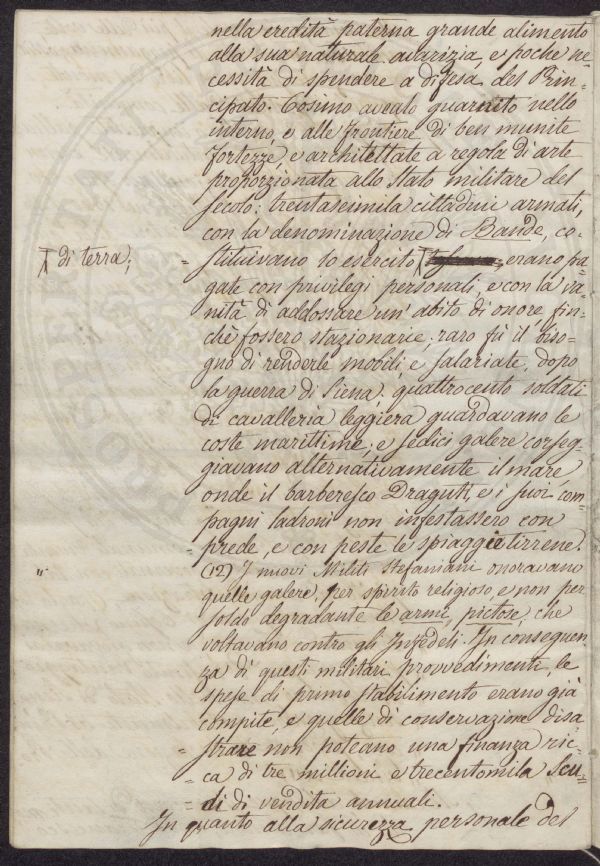 nella eredità paterna grande alimento
alla sua naturale avarizia, e poche ne
cessità di spendere a difesa del Prin-
cipato. Cosimo avealo guarnito nello
interno, e alle frontiere di ben munite
fortezze, e architettate a regola di arte
proporzionata allo stato militare del
secolo: trentaseimila cittadini armati,
con la denominazione di Bande, co-
= stituivano lo esercito erano pa
di terra;
gate con privilegi personali, e con la va
nità di addossare un' abito di onore fin-
chè fossero stazionarie; raro fù il biso-
gno di renderle mobili e salariate, dopo
la guerra di Siena: quattrocento soldati
di cavalleria leggiera guardavano le
coste marittime; e sedici galere corseg-
giavano alternativamente il mare,
onde il barberesco Dragutt, e i suoi com
pagni ladroni non infestassero con
= prede, e con peste le spiaggie tirrene.
(12) I nuovi Militi stefaniani onoravano
quelle galere, per spirito religioso, e non per
soldo degradante le armi, pietose, che
voltavano contro gli Infedeli. In conseguen
za di questi militari provvedimenti, le
spese di primo stabilimento erano già
compite, e quelle di conservazione disa
= strare non poteano una finanza ric-
= ca di tre millioni e trecentomila Scu=
= di di vendita annuali.
In quanto alla sicurezza personale del